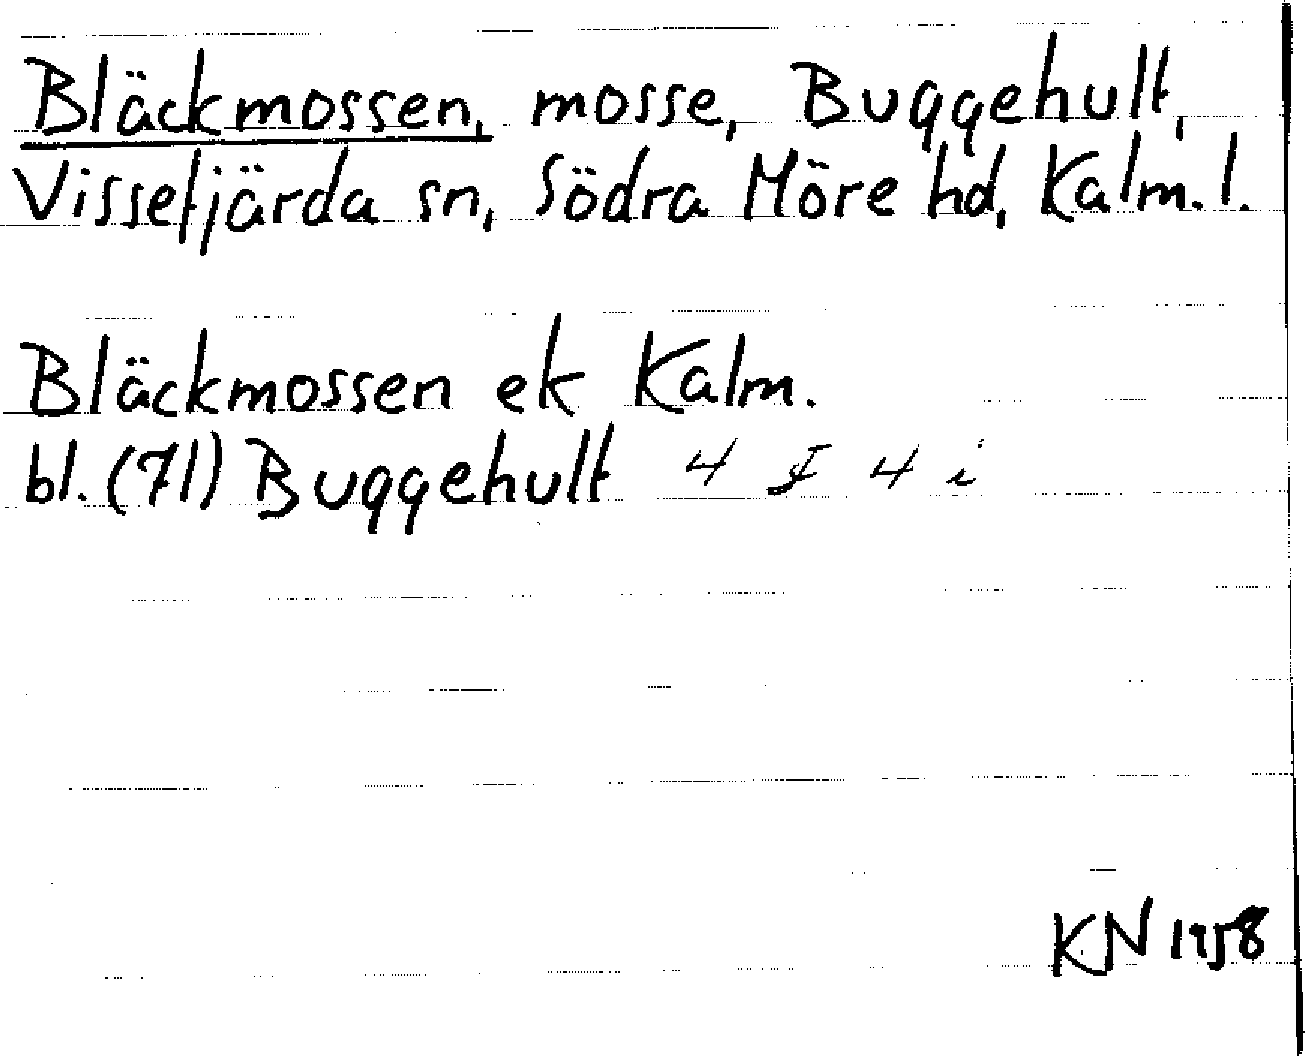 Bläckmossen, mosse, Buggehult,
Vissefjärda sn, Södra Möre hd, Kalm. l.
Bläckmossen ek Kalm.
bl. (71) Buggehult 4 F 4 i
KN 1958